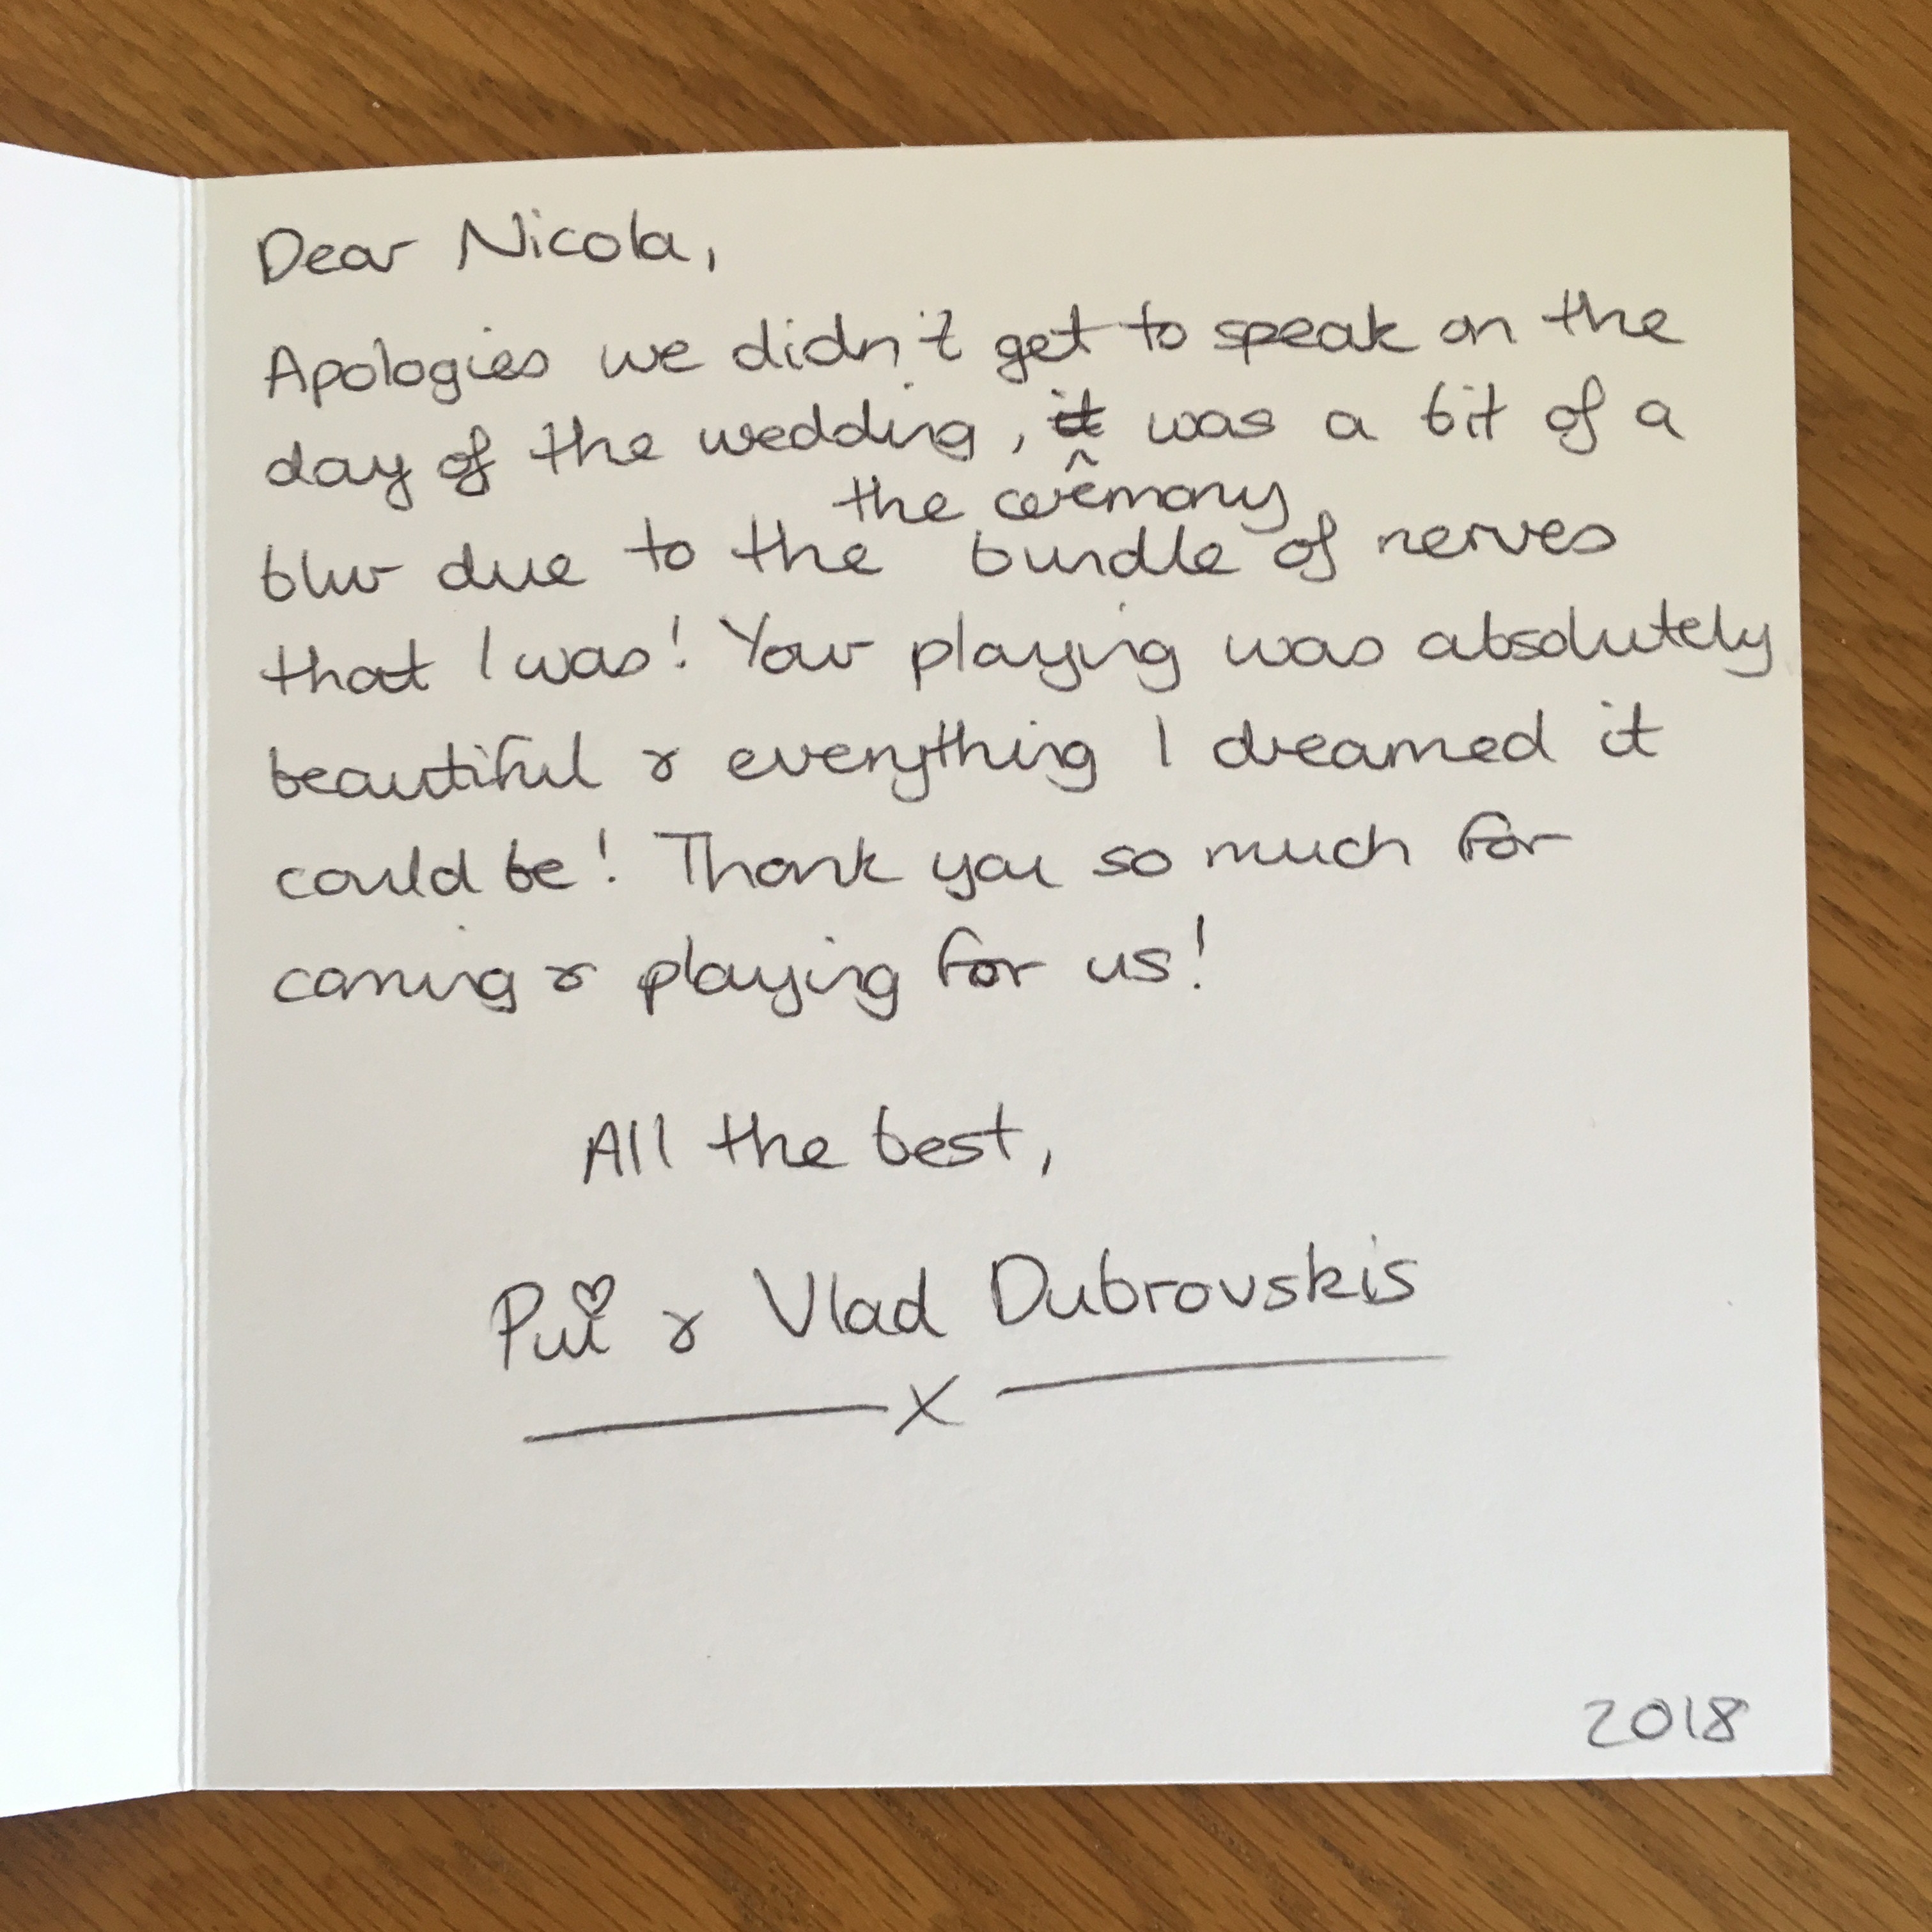 Dear Nicola,
Apologies we didn't get to speak on the
day of the wedding, it was a bit of a
^
the ceremony
blur due to the bundle of nerves
that I was! Your playing was absolutely
beautiful & everything I dreamed it
could be! Thank you so much for
coming & playing for us!
All the best,
Pui & Vlad Dubrovskis
x
2018